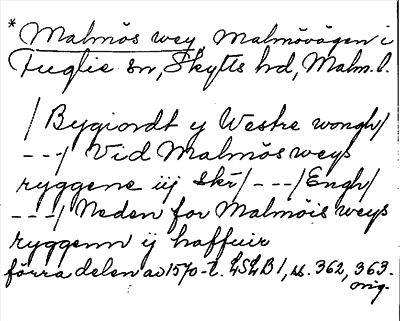 * Malmös wey, Malmövägen i
Fuglie sn, Skytts hd, Malm. l.
/ Bygiordt y Westre wongh/
---/ Vid Malmös weys
ryggene iij skr/ ---/Engh/
---/ Neden for Malmöis weys
ryggenn ij haffuir
förra delen av 1570-t. LSLB 1, ss. 362, 363.
orig.